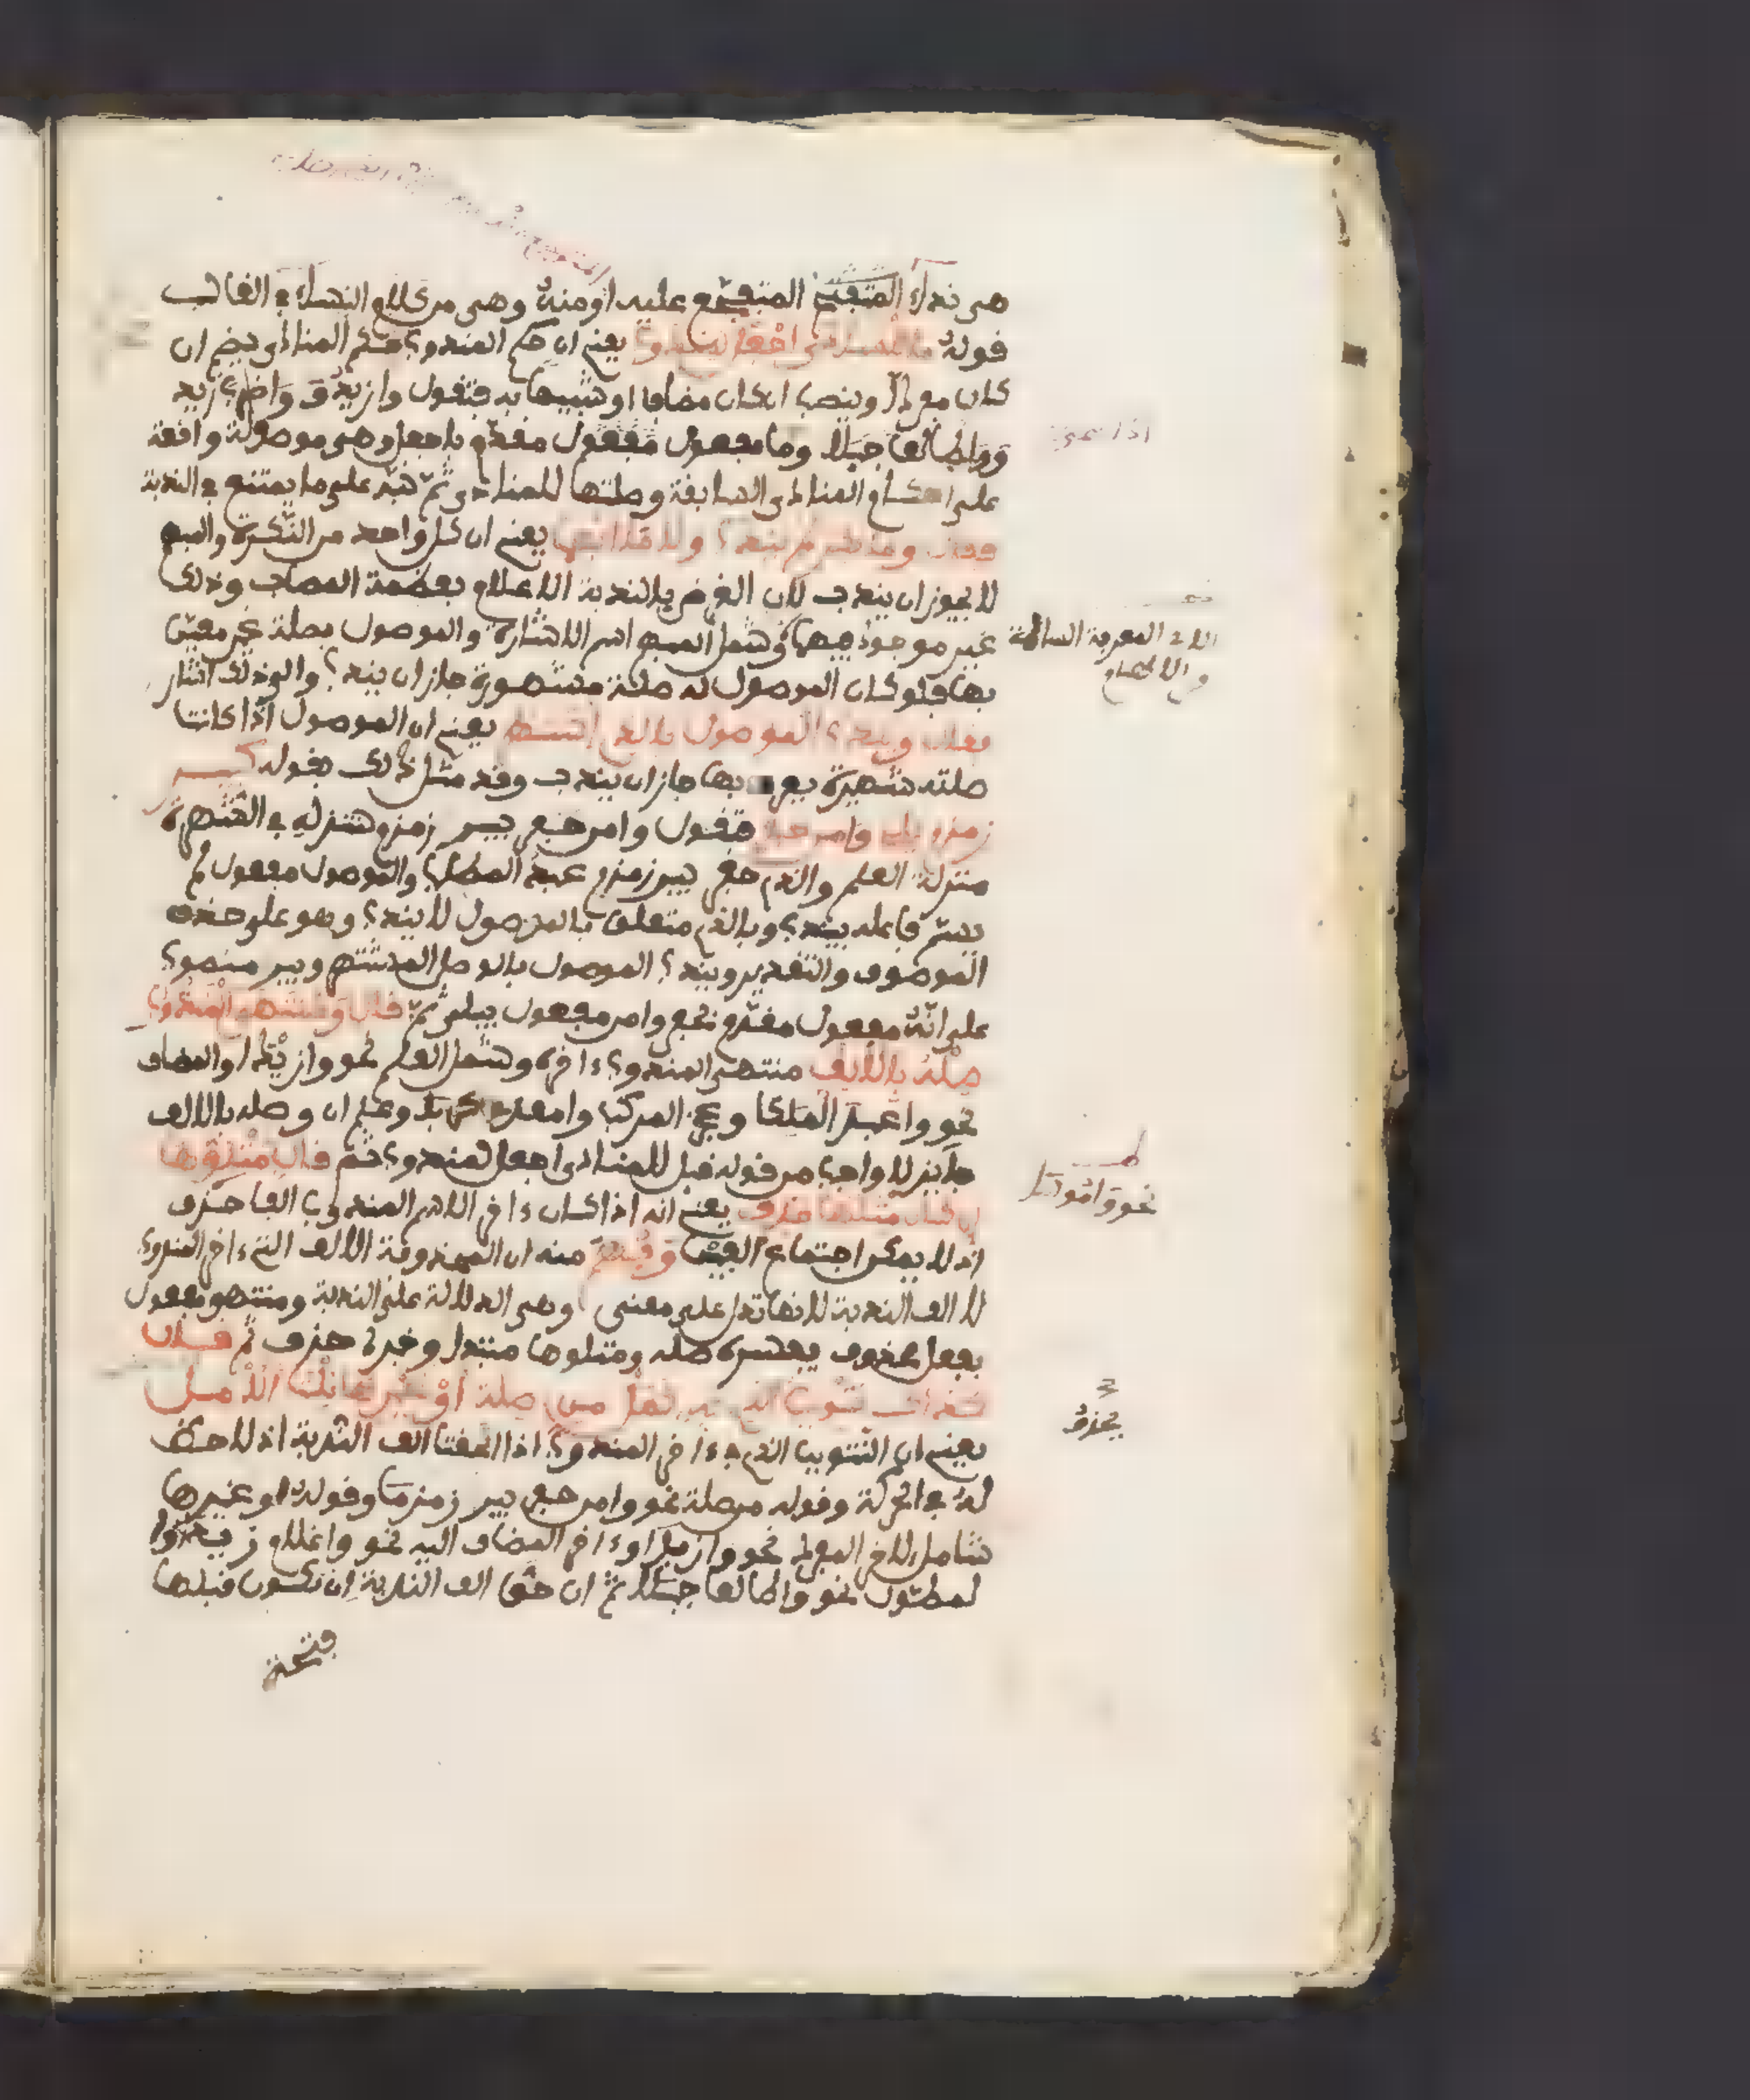 هي نداء المتفجع المتفجع عليه او منه وهي من كلام النساء في الغالب
قوله ما للمنادى اجعل لمندوب يعني ان حكم المندوب حكم المنادى فيضم ان
كان مفردا وينصب ان كان مضافا او شبيها به فتقول وا زيد وا ضارب زيد
ووا طالعا جبلا وما مفعول مفعول مقدم باجعل وهي موصولة واقعة
على احكام المنادى السابقة وصلتها للمنادى ثم نبه على ما يمتنع في الندبة
فقال وما نكر لم يندب ولا ما ابهما يعني ان كل واحد من النكرة والمبهم
لا يجوز ان يندب لان الغرض بالندبة الاعلام بعظمة المصاب وذلك
غير موجود فيهما وشمل المبهم اسم الاشارة والموصول بصلة غير معين
بها فلو كان الموصول له صلة مشهورة جاز ان يندب والى ذلك اشار
فقال ويندب الموصول بالذي اشتهر يعني ان الموصول اذا كانت
صلته شهيرة يعرف بها جاز ان يندب وقد مثل ذلك بقوله كبير
زمزم يلي وا من حفر فتقول وا من حفر بير زمزم فتنزله في الشهرة
منزلة العلم والذي حفر بير زمزم عبد المطلب والموصول مفعول لم
يسم فاعله بيندب وبالذي متعلق بالموصول لا يندب وهو على حذف
الموصوف والتقدير ويندب الموصول بالوصل المشتهر وبير منصوب
على انه مفعول مقدم بحفر وا من مفعول بيلي ثم قال ومنتهى المندوب
صله بالالف منتهى المندوب ءاخره وشمل العلم نحو وا زيدا والمضاف
نحو وا عبد الملكا وعجز المركب وا معدي كربا وعلم ان وصله بالالف
جايز لا واجب من قوله قبل للمنادى اجعل لمندوب ثم قال متلوها
ان كان مثلها حذف يعني انه اذا كان ءاخر الاسم المندوب الفا حذف
اذ لا يمكن اجتماع الفين وفهم منه ان المحذوفة الالف التي ءاخر المندوب
لا الف الندبة لانها تدل على معنى وهي الدلالة على الندبة ومنتهى مفعول
بفعل محذوف يفسره صله ومتلوها مبتدا وخبره حذف ثم قال
كذاك تنوين الذي به كمل من صلة او غيرها نلت الامل
يعني ان التنوين الذي في ءاخر المندوب اذا لحقتا الف الندبة اذ لا حظ
له في الحركة وقوله من صلة نحو وا من حفر بير زمزما وقوله او غيرها
شامل لاخر المفرد نحو وا زيدا وءاخر المضاف اليه نحو وا غلام زيدا وا
لمطول نحو وا طالعا جبلا ثم ان حق الف الندبة ان يكون قبلها
فتحة
يحذف